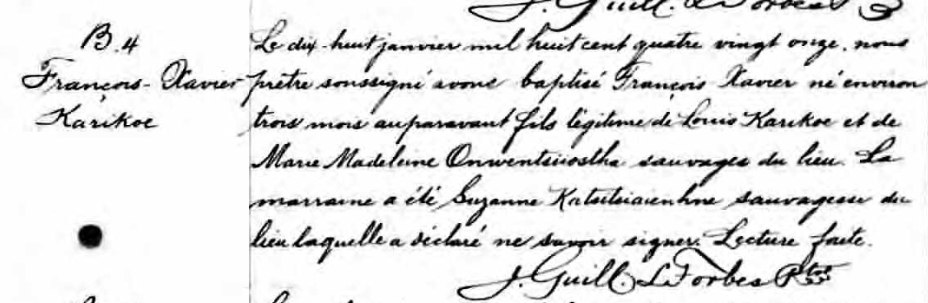 J. Guill. L. Forbes Ptre
B. 4
François-Xavier
Karikoe
Le dix-huit janvier mil huit cent quatre vingt onze, nous
prêtre soussigné avons baptisé François Xavier né environ
trois mois auparavant fils légitime de Louis Karikoe et de
Marie Madeleine Onwentsiiostha sauvages du lieu. La
marraine a été Suzanne Katsitsiaienhne sauvagesse du
lieu laquelle a déclaré ne savoir signer. Lecture faite.
J. Guill. L. Forbes Ptre